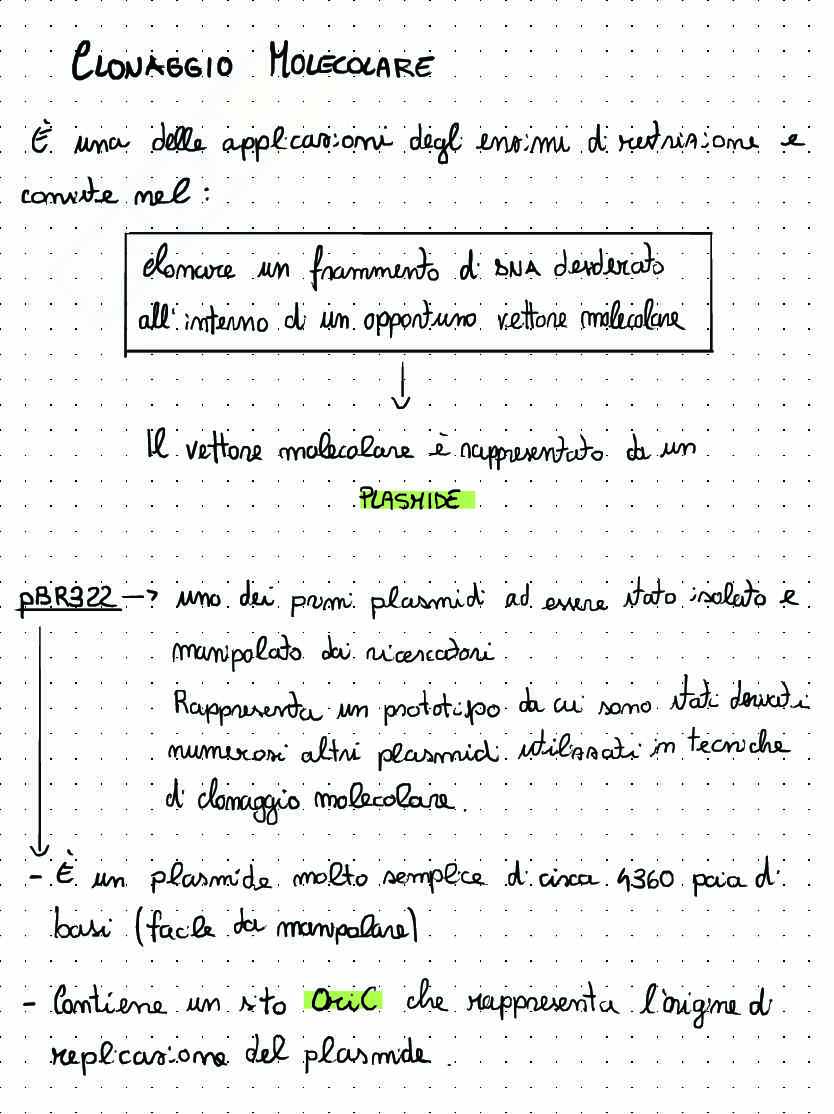 CLONAGGIO MOLECOLARE
È una delle applicazioni degli enzimi di restrizione e
consiste nel :
clonare un frammento di DNA desiderato
all'interno di un opportuno vettore molecolare
Il vettore molecolare è rappresentato da un
PLASMIDE
pBR322 → uno dei primi plasmidi ad essere stato isolato e
manipolato dai ricercatori.
Rappresenta un prototipo da cui sono stati derivati
numerosi altri plasmidi utilizzati in tecniche
di clonaggio molecolare.
- È un plasmide molto semplice di circa 4360 paia di
basi (facile da manipolare)
- Contiene un sito OriC che rappresenta l'origine di
replicazione del plasmide.